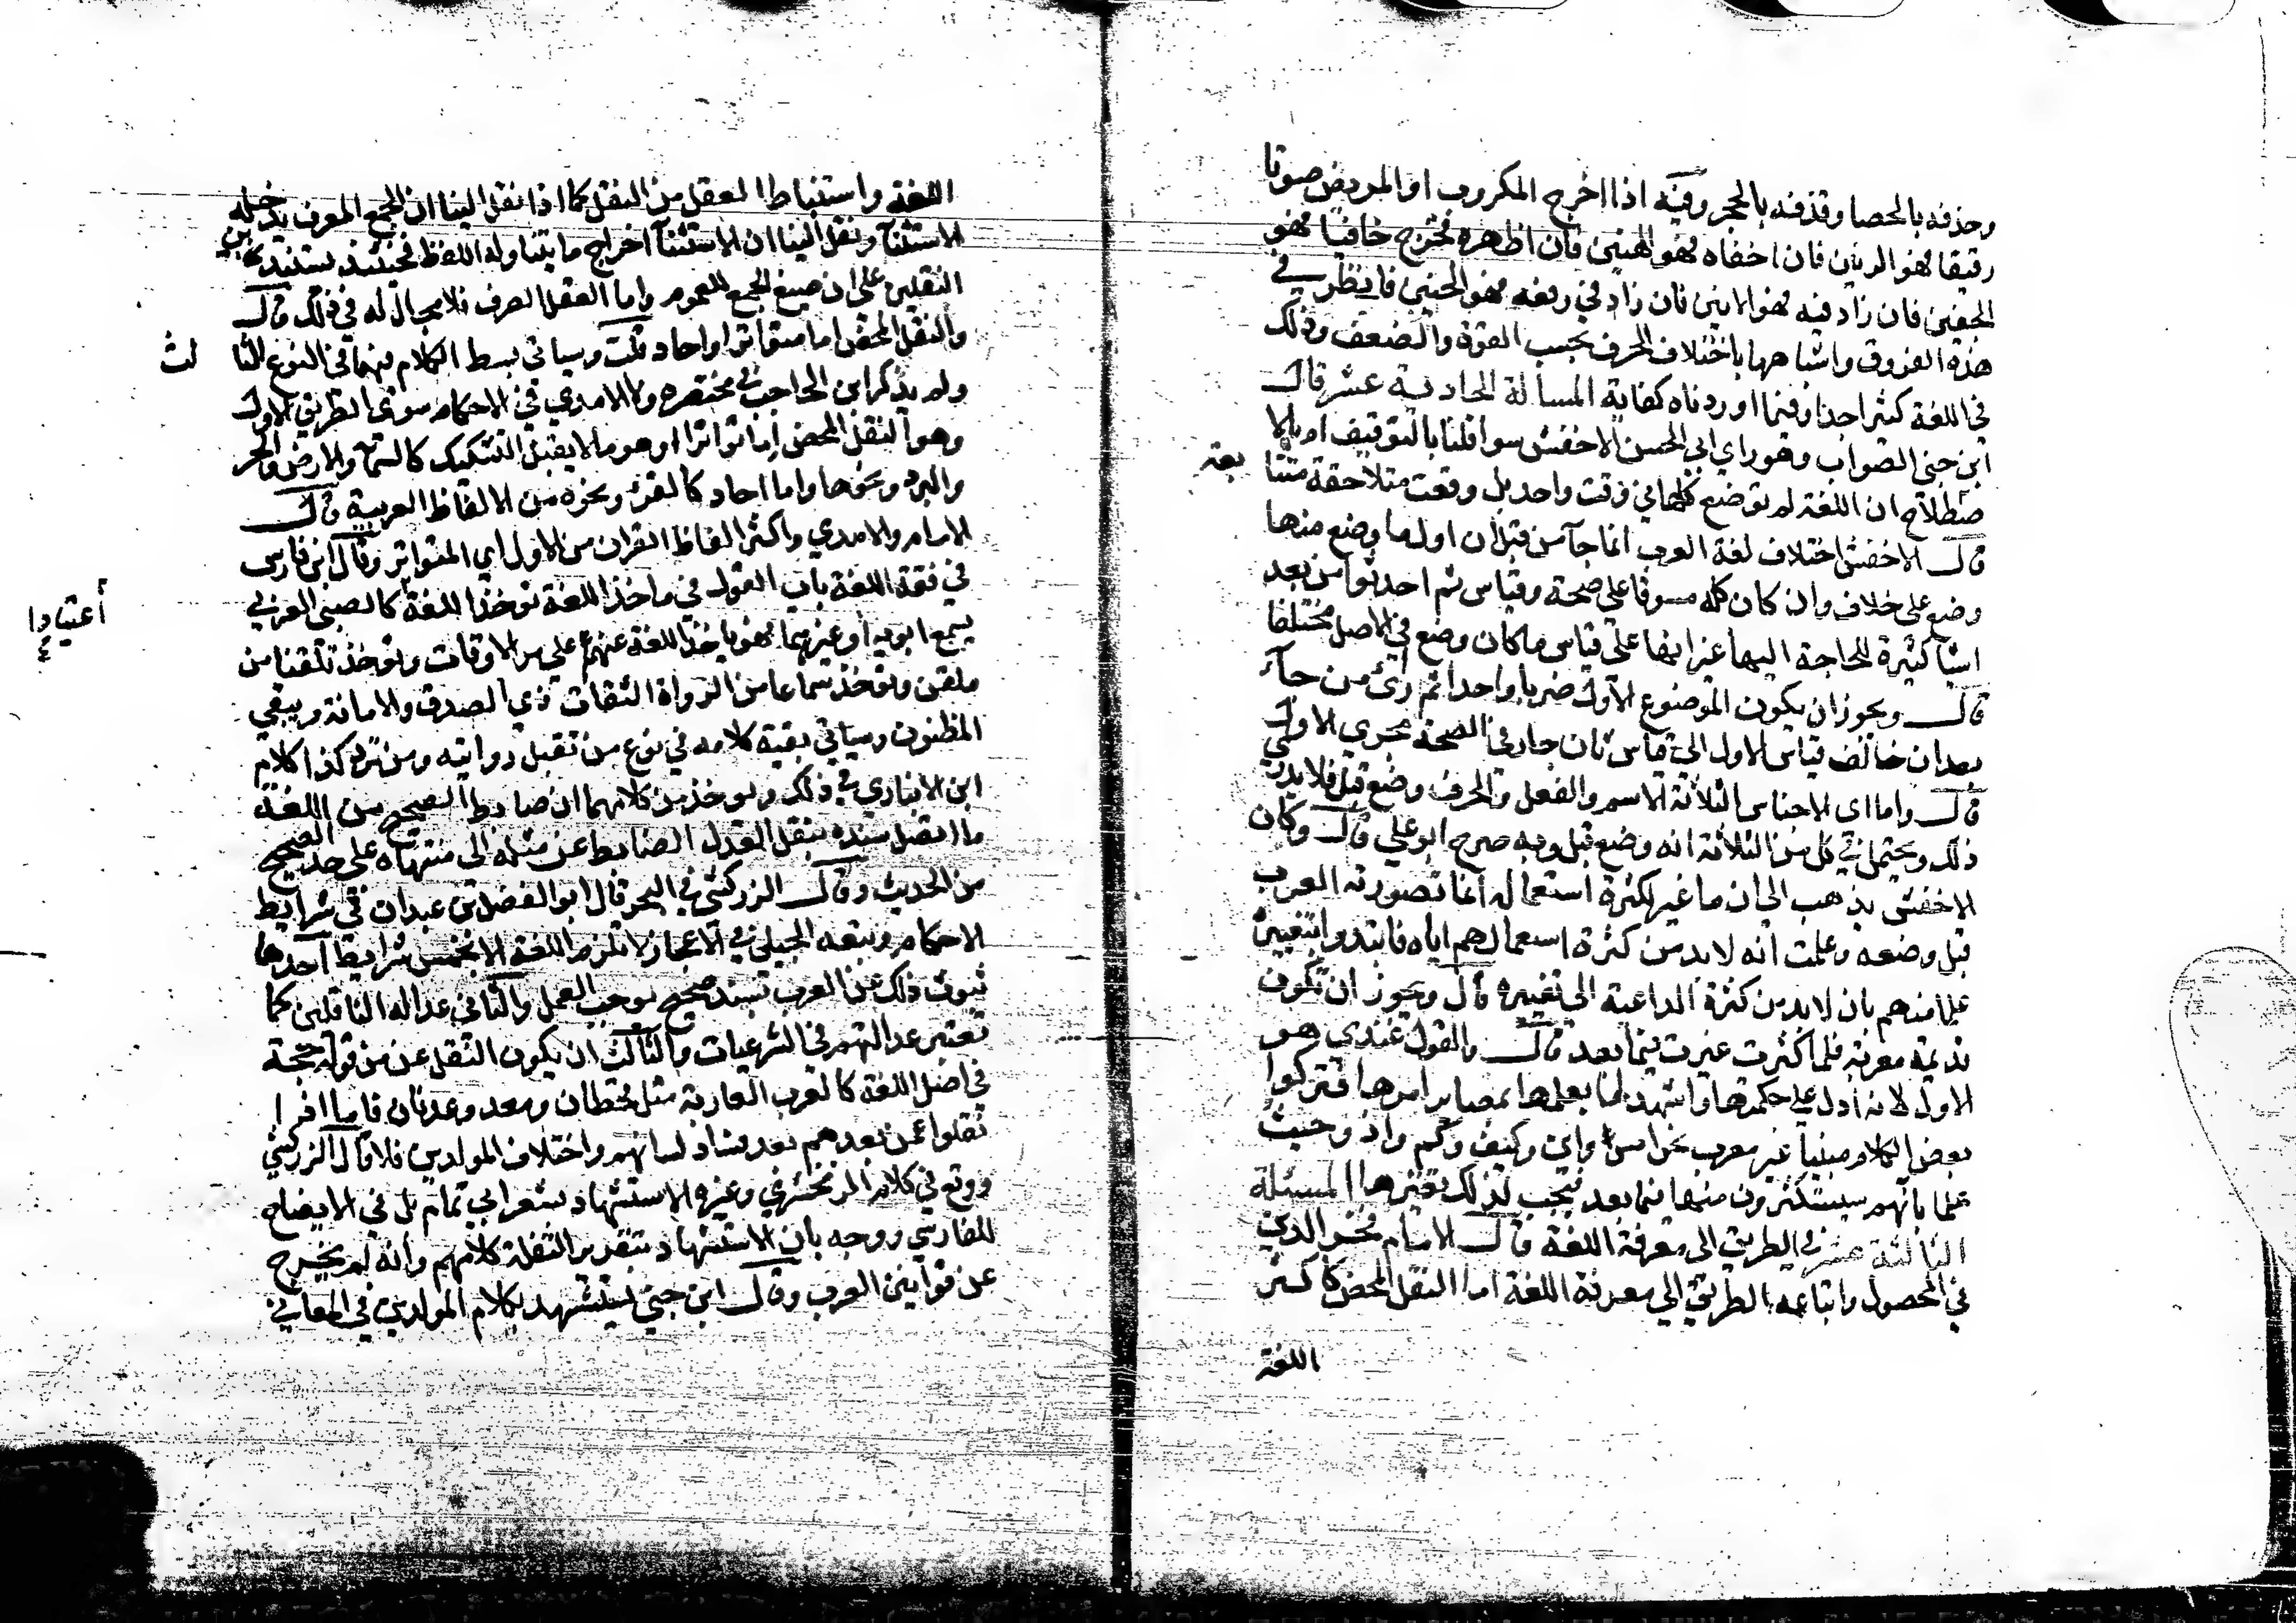 وحذفه بالحصا وقذفه بالحجر وفيه اذا اخرج المكروب او المريض صوتا
رقيقا فهو الرنين فان اخفاه فهو الهنين فان اظهره فخرج خافيا فهو
الحنين فان زاد فيه فهو الانين فان زاد في رفعه فهو الخنين فانظر في
هذه الفروق واشباهها باختلاف الحرف بحسب القوة والضعف وذلك
في اللغة كثير جدا وفيما اوردناه كفاية المسألة الحادية عشر قال
ابن جني الصواب وهو راي ابي الحسن الاخفش سوا قلنا بالتوقيف ام بالا
صطلاح ان اللغة لم توضع كلها في وقت واحد بل وقعت متلاحقة متتا
بعة
قال الاخفش اختلاف لغة العرب انما جآ من قبل ان اول ما وضع منها
وضع على خلاف وان كان كله مسوقا على صحة وقياس ثم احدثوا من بعد
اشيا كثيرة للحاجة اليها غير انها على قياس ما كان وضع في الاصل مختلفا
قال ويجوز ان يكون الموضوع الاول ضربا واحدا ثم رأى من جآء
بعد ان خالف قياس الاول الي قياس ثان جار في الصحة مجري الاول
قال واما اي الاجناس الثلاثة الاسم والفعل والحرف وضع قبل فلا يدري
ذلك ويحتمل في كل من الثلاثة انه وضع قبل وبه صرح ابو علي قال وكان
الاخفش يذهب الي ان ما غير لكثرة استعماله انما تصورته العرب
قبل وضعه وعلمت انه لابد من كثرة استعمالهم اياه فابتدوا بتغييره
علما منهم بان لابد من كثرة الداعية الى تغييره قال ويجوز ان تكون
قديمة معربة فلما كثرت غيرت فيما بعد قال والقول عندي هو
الاول لانه ادل علي حكمتها واشهد لها بعلمها بمصاير امرها فتركوا
بعض الكلام مبنيا غير معرب نحو امس واين وكيف وكم واذ وحيث
علما بانهم سيستكثرون منها فيما بعد فيجب لذلك تغيرها المسئلة
الثالثة عشر في الطريق الى معرفة اللغة قال الامام فخر الدين
في المحصول واتباعه الطريق الي معرفة اللغة اما النقل المحض كاكثر
اللغة
اللغة واستنباط العقل من النقل كما اذا نقل الينا ان الجمع المعرف يدخله
الاستثنآ ونقل الينا ان الاستثنآ اخراج ما يتناوله اللفظ فحينئذ يستدل بهذين
النقلين على ان صيغ الجمع للعموم واما العقل الصرف فلا مجال له في ذلك قال
والنقل المحض اما متواترا او احاد قلت وسياتي بسط الكلام فيهما في النوع الثا
لث
ولم يذكر ابن الحاجب في مختصره ولا الامدي في الاحكام سوى الطريق الاول
وهو النقل المحض اما تواترا وهو ما لا يقبل التشكيك كالسمآ والارض والحر
والبرد ونحوها واما احاد كالقرء ونحوه من الالفاظ العربية قال
الامام والامدي واكثر الفاظ القران من الاول اي المتواتر وقال ابن فارس
في فقه اللغة باب القول في ماخذ اللغة توخذ اللغة كالصبي العربي
أعتيادا
يسمع ابويه او غيرهما فهو ياخذ اللغة عنهم علي مر الاوقات وتوخذ تلقنا من
ملقن وتوخذ سماعا من الرواة الثقات ذي الصدق والامانة ويتقي
المظنون وسياتي بقية كلامه في نوع من تقبل روايته ومن ترد كذا كلام
ابن الانباري في ذلك ويوخذ من كلامهما ان ضابط الصحيح من اللغة
ما اتصل سنده بنقل العدل الضابط عن مثله الي منتهاه على حد الصحيح
من الحديث وقال الزركشي في البحر قال ابو الفضل بن عبدان في شرايط
الاحكام وتبعه الجيلي في الاعجاز لا تلزم اللغة الا بخمس شرايط احدها
ثبوت ذلك عن العرب بسند صحيح يوجب العمل والثاني عدالة الناقلين كما
تعتبر عدالتهم في الشرعيات والثالث ان يكون النقل عن من قوله حجة
في اصل اللغة كالعرب العاربة مثل قحطان ومعد وعدنان فاما اذا
نقلوا عمن بعدهم بعد فساد لسانهم واختلاف المولدين فلا قال الزركشي
ووقع في كلام الزمخشري وغيره الاستشهاد بشعر ابي تمام بل في الايضاح
للفارسي ووجه بان الاستشهاد بتقدير النقلة كلامهم وانه لم يخرج
عن قوانين العرب وقال ابن جني يستشهد بكلام المولدين في المعاني